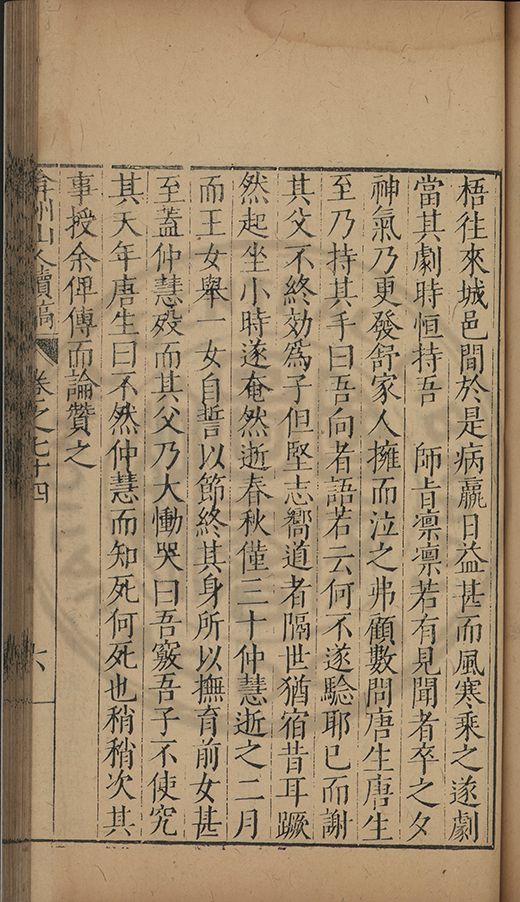 梧往來城邑間於是病羸日益甚而風寒乘之遂劇
當其劇時恒持吾　師旨凛凛若有見聞者卒之夕
神氣乃更發舒家人擁而泣之弗顧數問唐生唐生
至乃持其手曰吾向者語若云何不遂驗耶已而謝
其父不終効爲子但堅志嚮道者隔世猶宿昔耳蹶
然起坐小時遂奄然逝春秋僅三十仲慧逝之二月
而王女舉一女自誓以節終其身所以撫育前女甚
至蓋仲慧殁而其父乃大慟哭曰吾竅吾子不使究
其天年唐生曰不然仲慧而知死何死也稍稍次其
事授余俾傳而論贊之
弇州山人續稿 卷之七十四 六